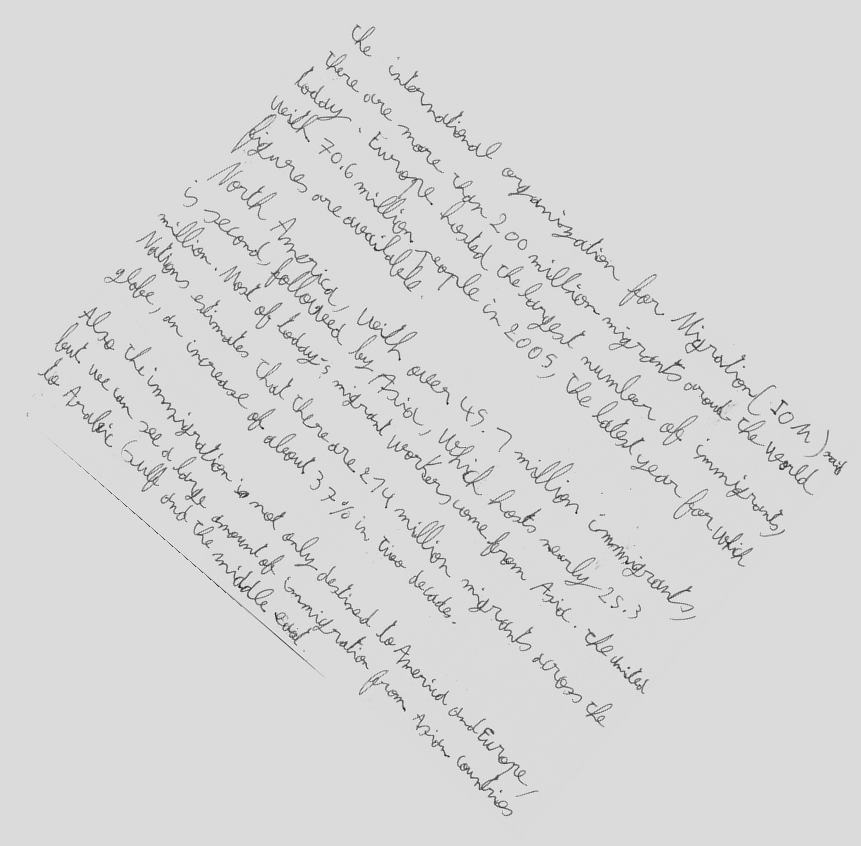 The international organization for Migration (IOM) said
there are more than 200 million migrants around the world
today. Europe hosted the largest number of immigrants,
with 70.6 million people in 2005, the latest year for which
figures are available.
North America, with over 45.7 million immigrants,
is second, followed by Asia, which hosts nearly 25.3
million. Most of today's migrant workers come from Asia. The united
Nations estimates that there are 214 million migrants across the
globe, an increase of about 37% in two decades.
Also the immigration is not only destined to America and Europe,
but we can see a large amount of immigration from Asian countries
to Arabic Gulf and the middle east.